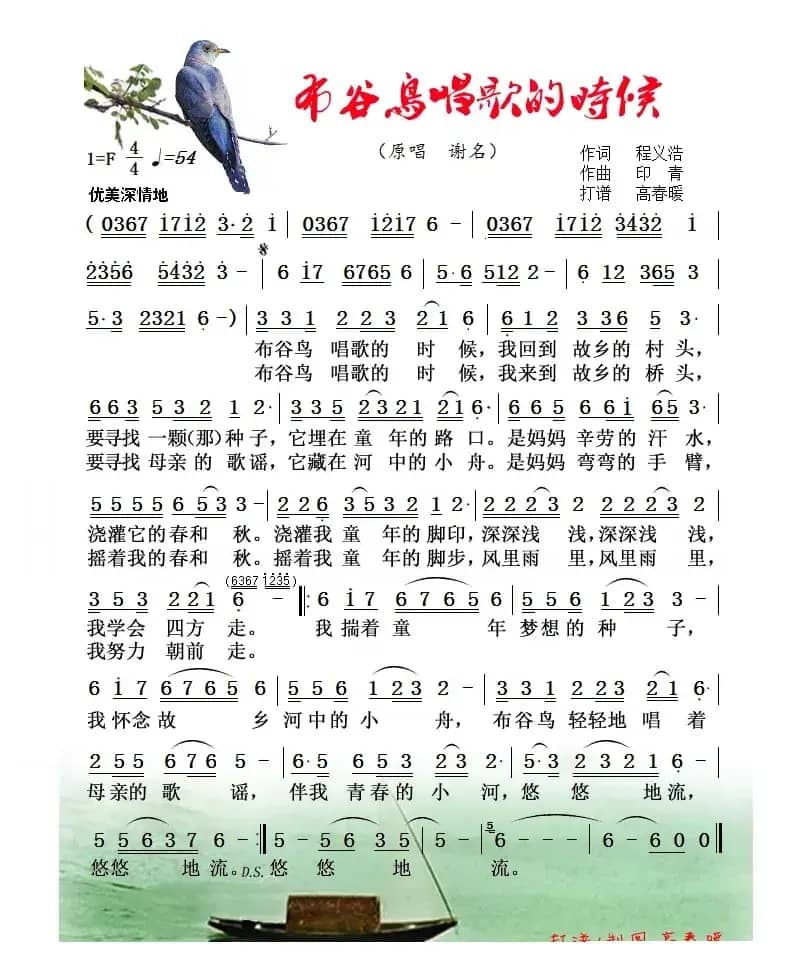 布谷鸟唱歌的時候
（原唱 谢名）
1=F 4/4 ♩=54
作词 程义浩
作曲 印 青
打谱 高春暖
优美深情地
(0367 1712 3·2 1 | 0367 1217 6 - | 0367 1712 3432 1
2356 5432 3 - | 6 17 6765 6 | 5·6 512 2 - | 6 12 365 3
5·3 2321 6 -) | 331 223 21 6 | 612 336 5 3·
布谷鸟 唱歌的 时 候，我回到 故乡的 村 头，
布谷鸟 唱歌的 时 候，我来到 故乡的 桥 头，
663 532 1 2· | 335 2321 21 6· | 665 661 65 3·
要寻找 一颗(那)种 子，它埋在 童 年的 路 口。是妈妈 辛劳的 汗 水，
要寻找 母亲 的 歌 谣，它藏在 河 中的 小 舟。是妈妈 弯弯的 手 臂，
5555 653 3 - | 226 3532 1 2· | 2223 2 2223 2
浇灌它的春和 秋。浇灌我 童 年的脚印，深深浅 浅，深深浅 浅，
摇着我的春和 秋。摇着我 童 年的脚步，风里雨 里，风里雨 里，
(6367 1235)
353 221 6 - |: 6 17 6765 6 | 556 123 3 -
我学会 四方 走。 我 揣着 童 年 梦想的 种 子，
我努力 朝前 走。
6 17 6765 6 | 556 123 2 - | 331 223 21 6·
我 怀念 故 乡 河中的 小 舟， 布谷鸟 轻轻地 唱 着
255 676 5 - | 6·5 653 23 2 · | 5·3 2321 6 -
母亲的 歌 谣， 伴我 青春的 小 河，悠 悠 地流，
5 5637 6 - :| 5 - 56 35 | 5 5 6 - - - | 6 - 600 ‖
悠悠 地 流。D.S. 悠 悠 地 流。
打谱/制图 高春暖